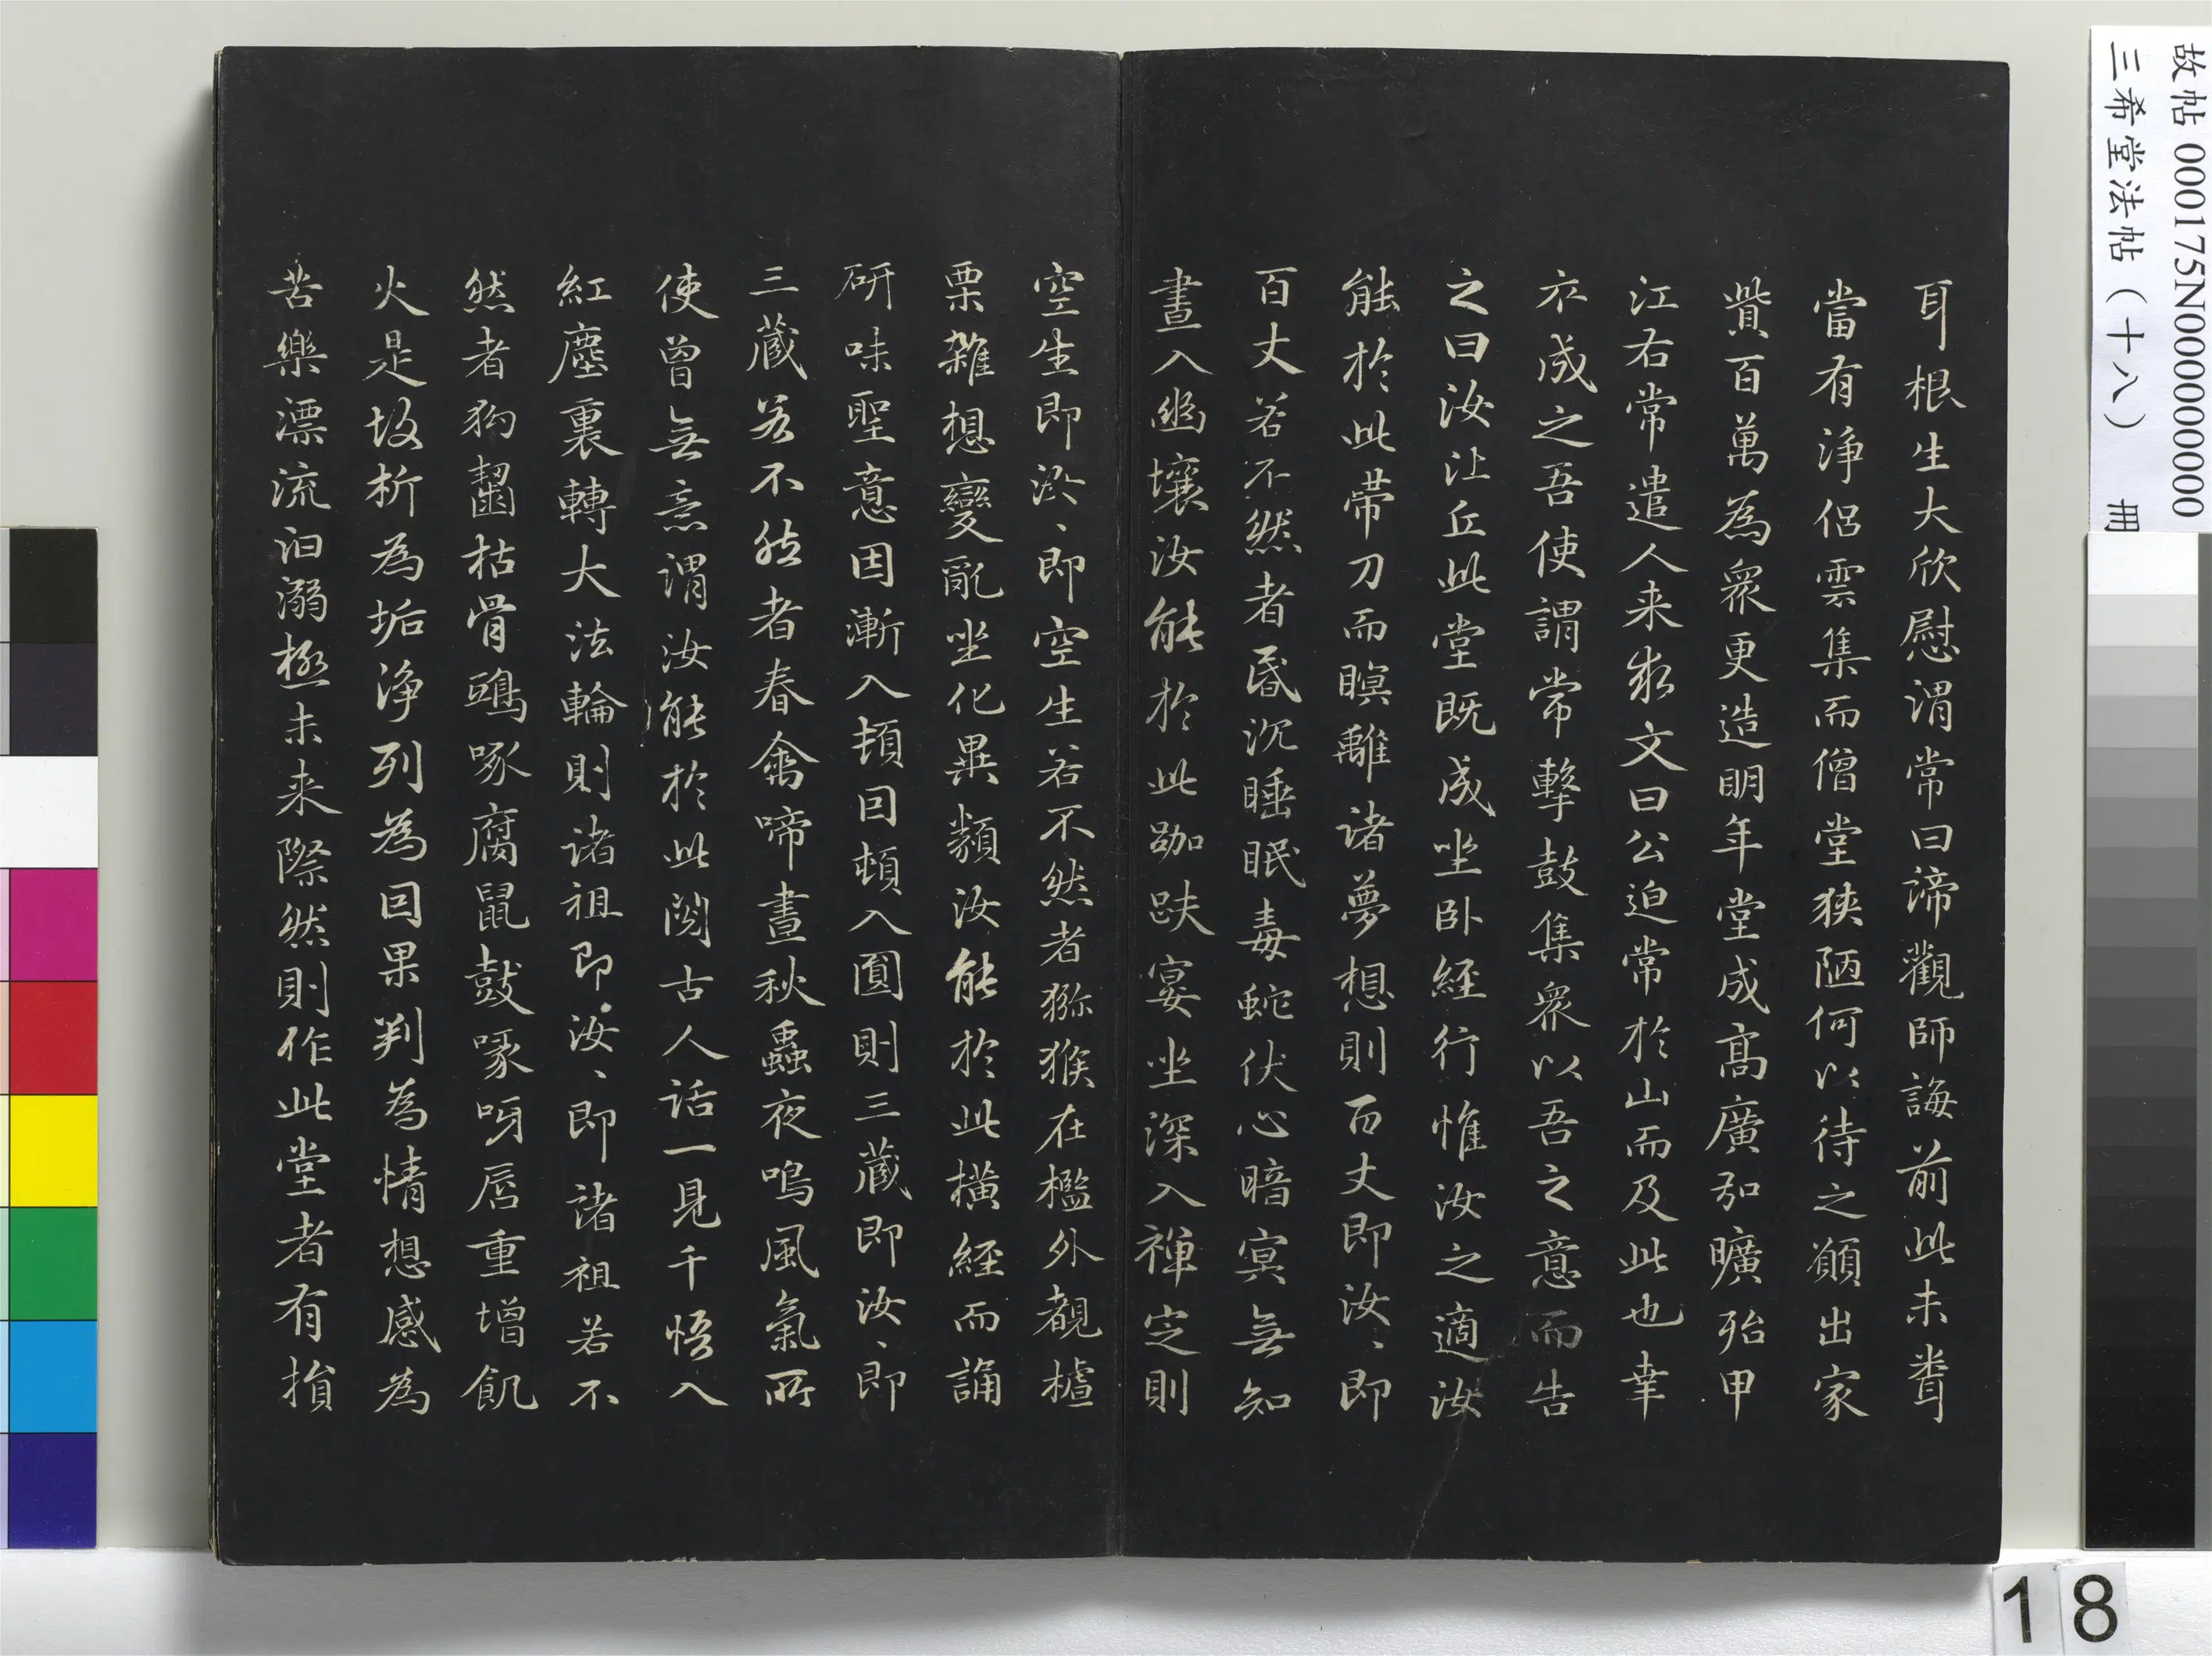 耳根生大欣慰謂常曰諦觀師誨前此未嘗
當有淨侶雲集而僧堂狹陋何以待之願出家
貲百萬為衆更造明年堂成髙廣弘曠殆甲
江右常遣人来求文曰公迫常於山而及此也幸
不成之吾使謂常擊鼓集衆以吾之意而告
之曰汝比丘此堂既成坐卧経行惟汝之適汝
能於此帶刀而瞑離諸夢想則百丈即汝、即
百丈若不然者昏沉睡眠毒蛇伏心暗㝠無知
晝入幽壤汝能於此跏趺宴坐深入禪定則
空生即汝、即空生若不然者獼猴在檻外覩樝
栗雜想變亂坐化異類汝能於此横経而誦
研味聖意因漸入頓因頓入圓則三藏即汝、即
三藏若不然者春禽啼晝秋蟲夜鳴風氣所
使曾無意謂汝能於此閱古人話一見千悟入
紅塵裏轉大法輪則諸祖即汝、即諸祖若不
然者狗齧枯骨鴟啄腐鼠鼓喙呀唇重增飢
火是故析為垢淨列為因果判為情想感為
苦樂漂流汩溺極未来際然則作此堂者有損
故帖 000175N000000000
三希堂法帖（十八） 冊
18